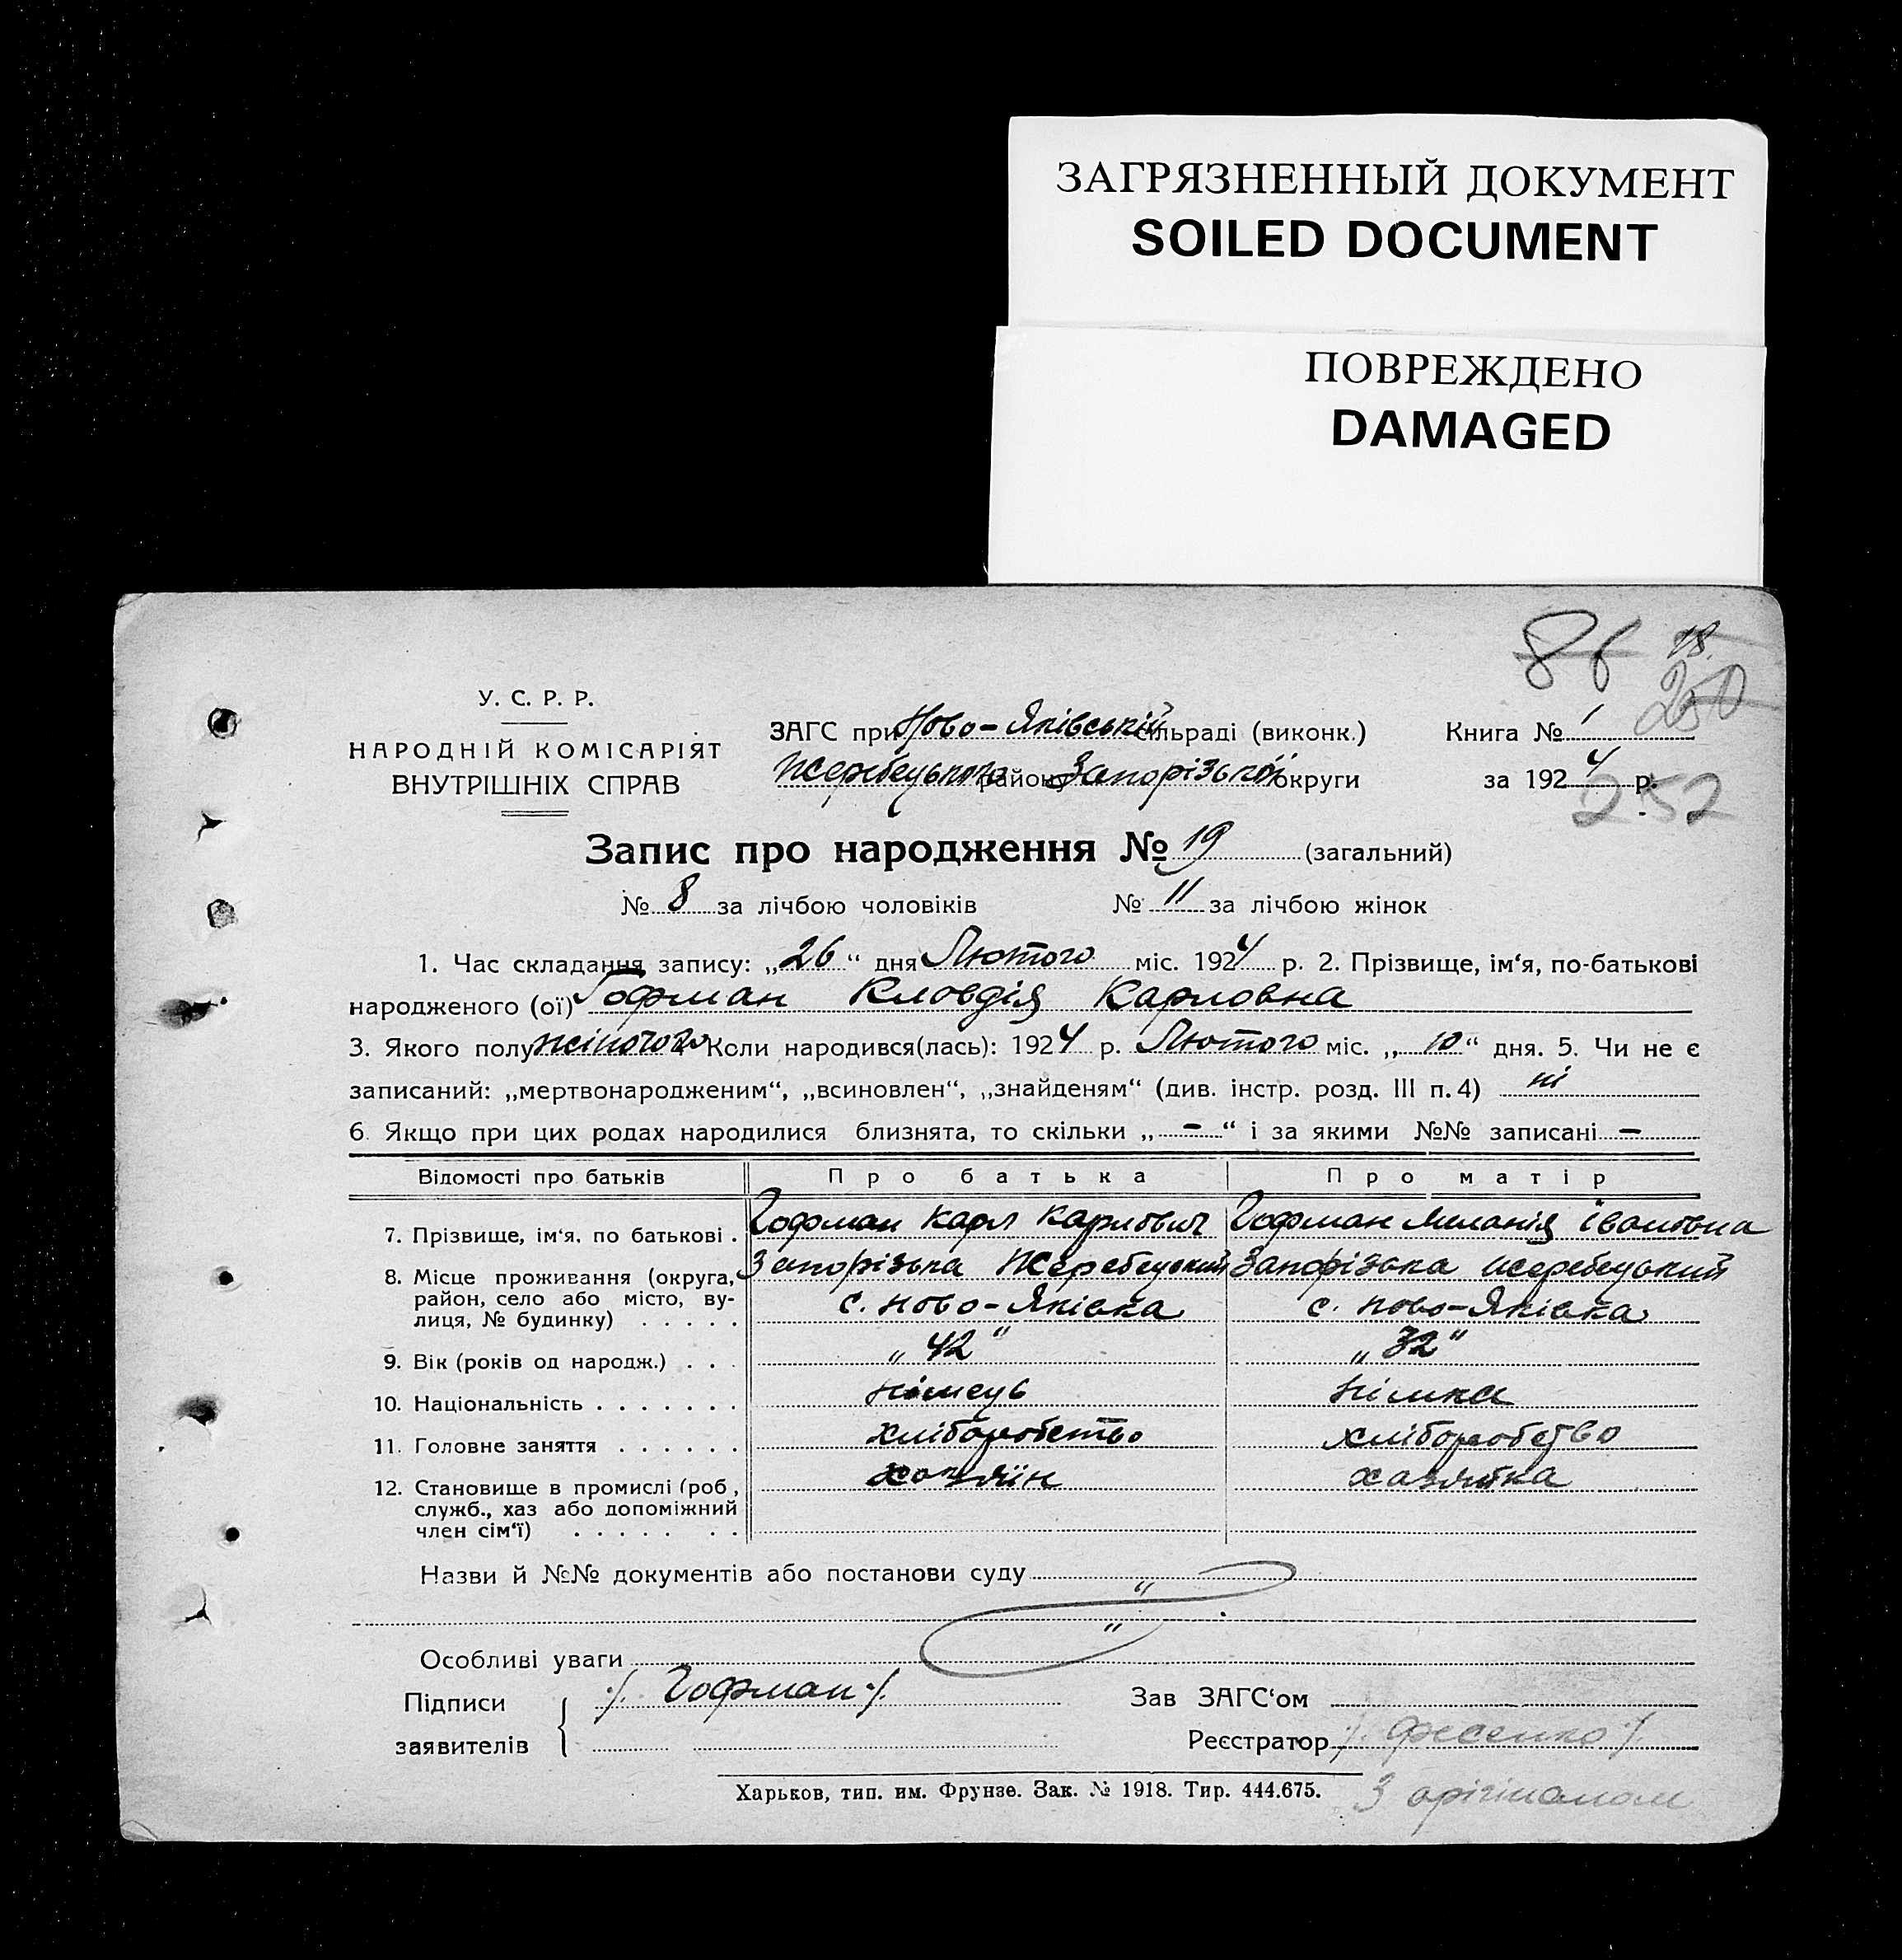 ЗАГРЯЗНЕННЫЙ ДОКУМЕНТ
SOILED DOCUMENT
ПОВРЕЖДЕНО
DAMAGED
86 18.
250
У. С. Р. Р.
НАРОДНІЙ КОМІСАРІЯТ
ВНУТРІШНІХ СПРАВ
ЗАГС при Ново-Яківській сільраді (виконк.) Книга № 1
Жеребецького району Запорізької округи за 1924 р.
252
Запис про народження № 19 (загальний)
№ 8 за лічбою чоловіків № 11 за лічбою жінок
1. Час складання запису: „26“ дня Лютого міс. 1924 р. 2. Прізвище, ім‘я, по-батькові
народженого (ої) Гофман Кловдія Карловна
3. Якого полу жіночого 4. Коли народився(лась): 1924 р. Лютого міс. „10“ дня. 5. Чи не є
записаний: „мертвонародженим“, „всиновлен“, „знайденям“ (див. інстр. розд. III п. 4) ні
6. Якщо при цих родах народилися близнята, то скільки „–“ і за якими №№ записані –
Відомості про батьків Про батька Про матір
7. Прізвище, ім‘я, по батькові . Гофман Карл Карлович Гофман Меланія Івановна
8. Місце проживання (округа, Запорізька Жеребецький Запорізька Жеребецький
район, село або місто, ву- с. Ново-Яківка с. Ново-Яківка
лиця, № будинку) . . . . .
9. Вік (років од народж.) . . . „42“ „32“
10. Національність . . . . . . . німець німка
11. Головне заняття . . . . . . хліборобство хліборобство
12. Становище в промислі (роб., хазяїн хазяйка
служб., хаз або допоміжний
член сім‘ї) . . . . . . .
Назви й №№ документів або постанови суду "
"
Особливі уваги
Підписи /. Гофман ./ Зав ЗАГС‘ом
заявителів Реєстратор /. Фесенко ./
Харьков, тип. им. Фрунзе. Зак. № 1918. Тир. 444.675.
З орігіналом